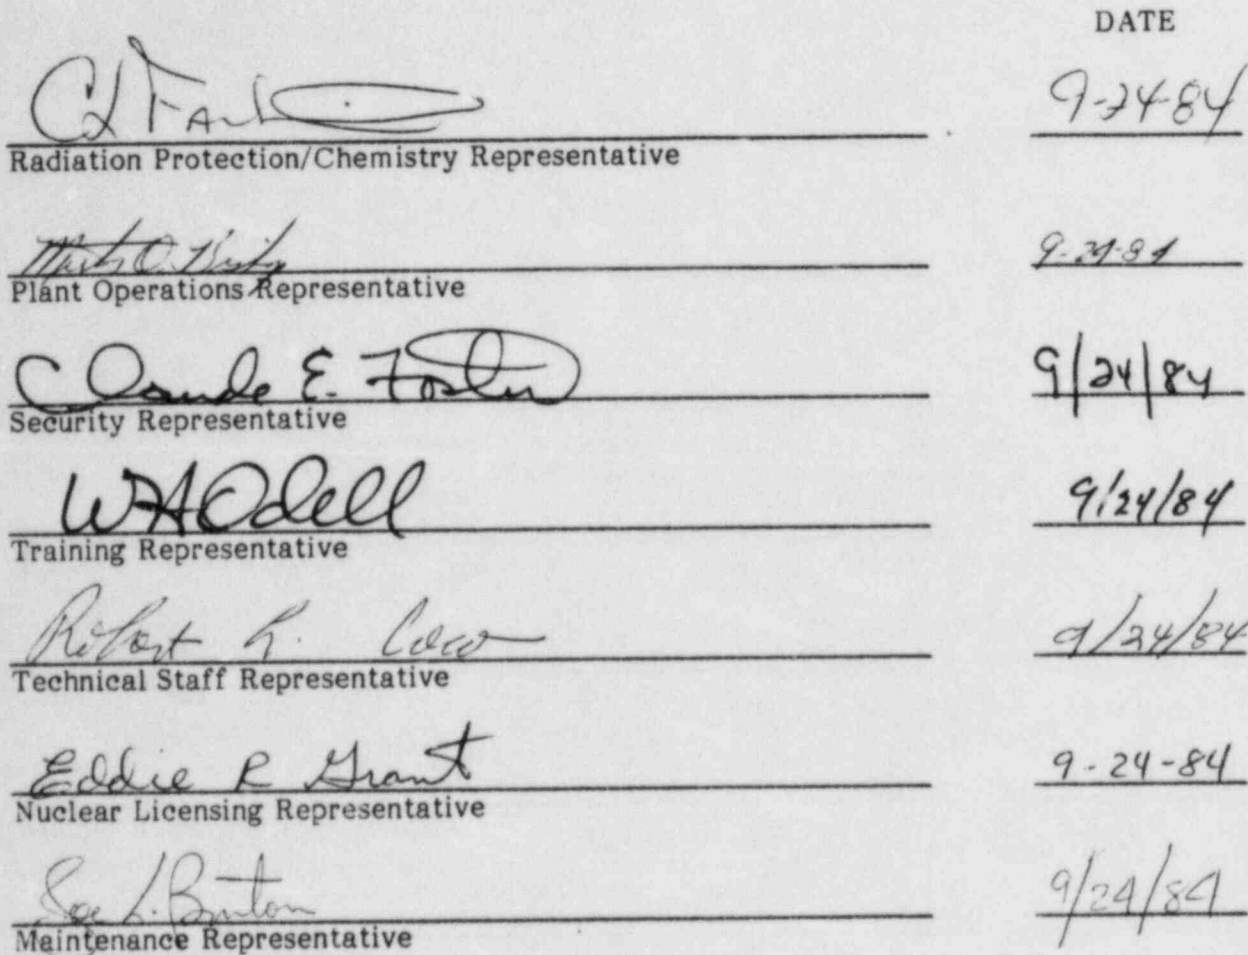 DATE
9-24-84
Radiation Protection/Chemistry Representative
9-24-84
Plant Operations Representative
Claude E. Foster 9/24/84
Security Representative
WAOdell 9/24/84
Training Representative
Robert R. 9/24/84
Technical Staff Representative
Eddie R Grant 9-24-84
Nuclear Licensing Representative
L. Burton 9/24/84
Maintenance Representative